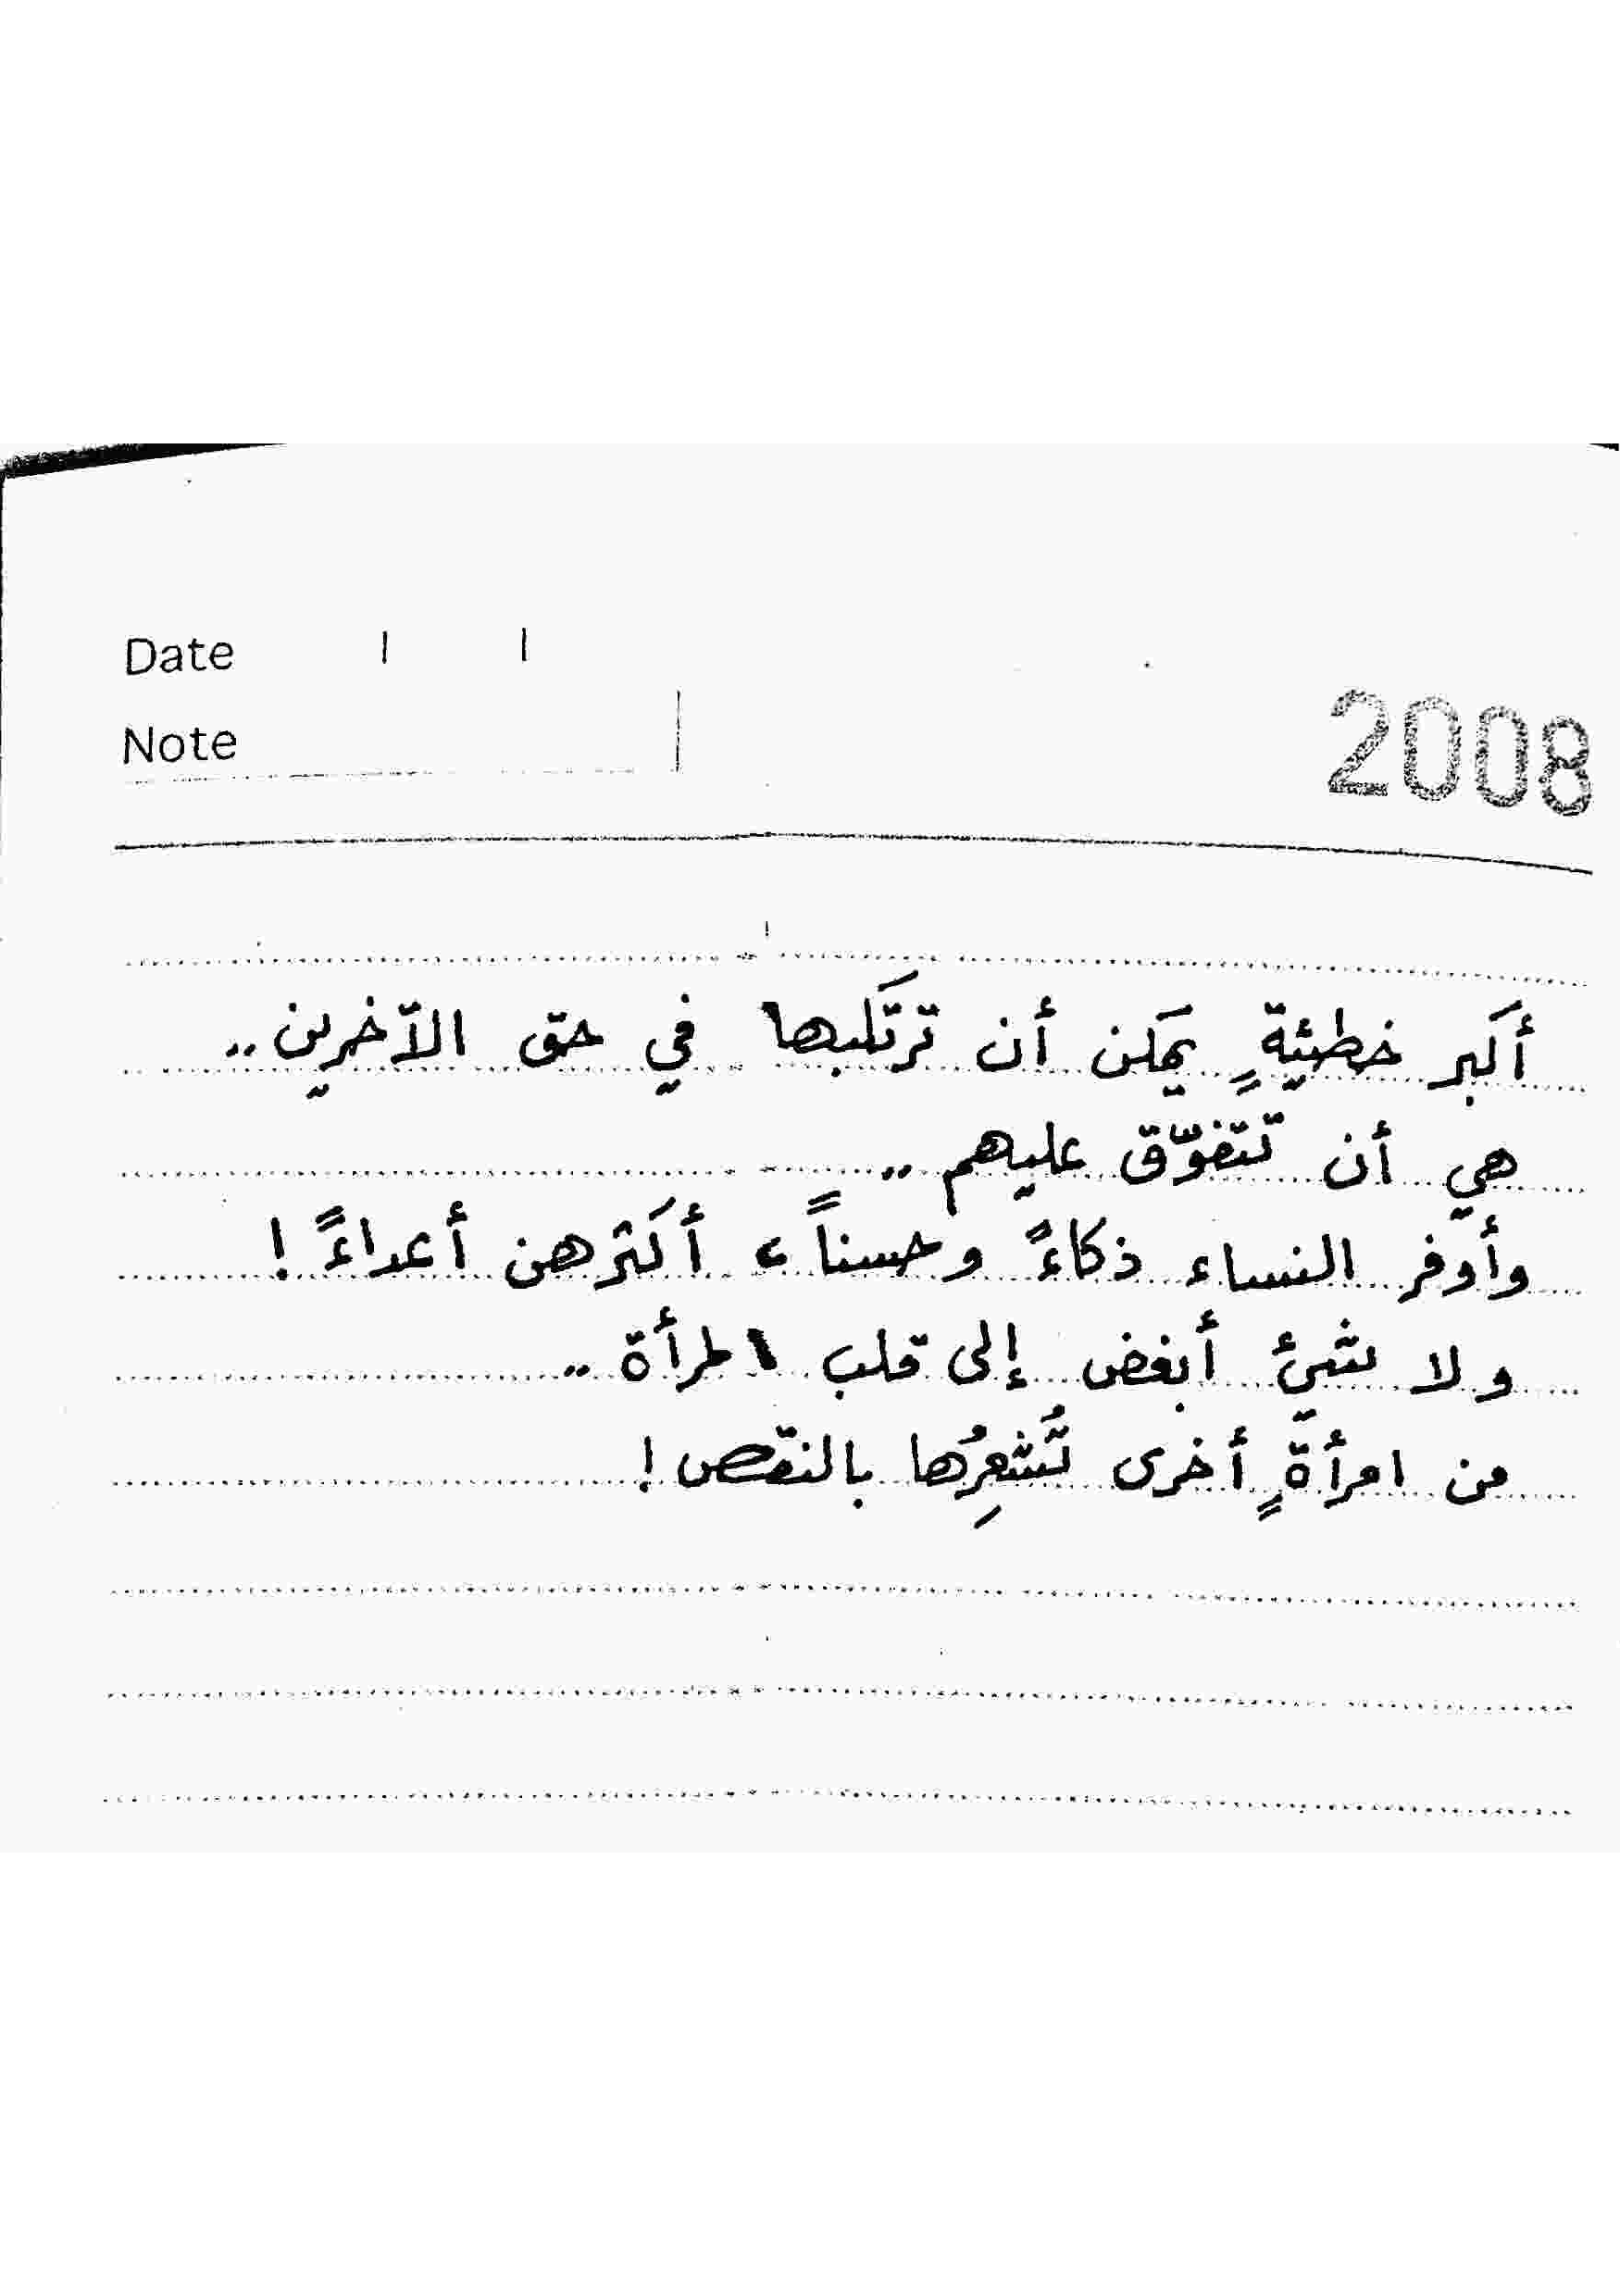 Date / /
Note
2008
أكبر خطيئةٍ يمكن أن ترتكبها في حق الآخرين..
هي أن تتفوّق عليهم..
وأوفر النساء ذكاءً وحسناً، أكثرهن أعداءً!
ولا شيئ أبغض إلى قلب المرأة..
من امرأةٍ أخرى تُشعِرُها بالنقص!